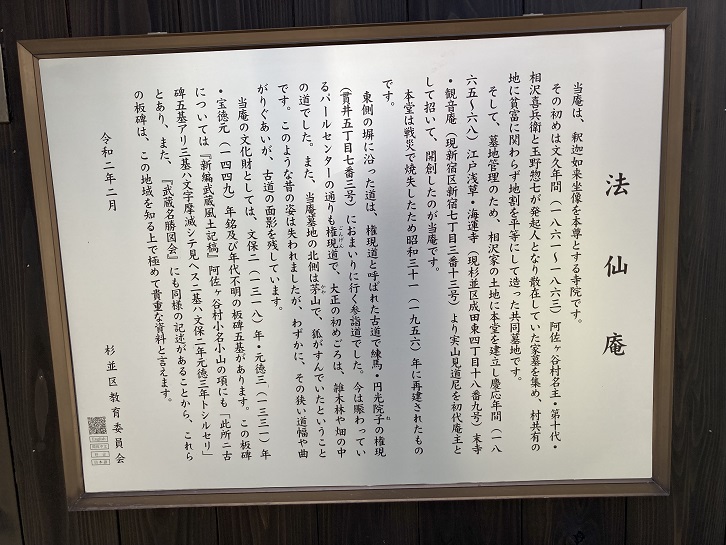 法仙庵
当庵は、釈迦如来坐像を本尊とする寺院です。
その初めは文久年間（一八六一～一八六三）阿佐ヶ谷村名主・第十代・
相沢喜兵衛と玉野惣七が発起人となり散在していた家墓を集め、村共有の
地に貧富に関わらず地割を平等にして造った共同墓地です。
そして、墓地管理のため、相沢家の土地に本堂を建立し慶応年間（一八
六五～六八）江戸浅草・海運寺（現杉並区成田東四丁目十八番九号）末寺
・観音庵（現新宿区新宿七丁目三番十三号）より実山見道尼を初代庵主と
して招いて、開創したのが当庵です。
本堂は戦災で焼失したため昭和三十一（一九五六）年に再建されたもの
です。
東側の塀に沿った道は、権現道と呼ばれた古道で練馬・円光院子の権現
（貫井五丁目七番三号）におまいりに行く参詣道でした。今は賑わってい
るパールセンターの通りも権現道で、大正の初めごろは、雑木林や畑の中
の道でした。また、当庵墓地の北側は茅山で、狐がすんでいたということ
です。このような昔の姿は失われましたが、わずかに、その狭い道幅や曲
がりぐあいが、古道の面影を残しています。
当庵の文化財としては、文保二（一三一八）年・元徳三（一三三一）年
・宝徳元（一四四九）年銘及び年代不明の板碑五基があります。この板碑
については『新編武蔵風土記稿』阿佐ヶ谷村小名小山の項にも「此所ニ古
碑五基アリ三基ハ文字摩滅シテ見ヘス二基ハ文保二年元徳三年トシルセリ」
とあり、また、『武蔵名勝図会』にも同様の記述があることから、これら
の板碑は、この地域を知る上で極めて貴重な資料と言えます。
令和二年二月
杉並区教育委員会
English